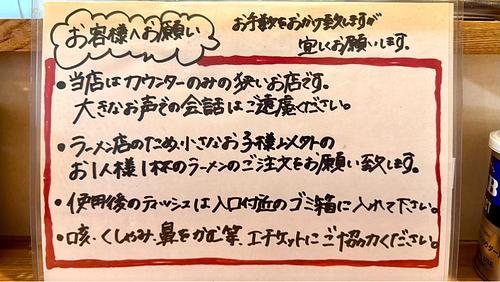 お客様へお願い
お手数をおかけ致しますが
宜しくお願いします。
•当店はカウンターのみの狭いお店です。
大きなお声での会話はご遠慮ください。
•ラーメン店のため、小さなお子様以外の
お1人様1杯のラーメンのご注文をお願い致します。
•使用後のティッシュは入口付近のゴミ箱に入れて下さい。
•咳・くしゃみ・鼻をかむ等、エチケットにご協力ください。